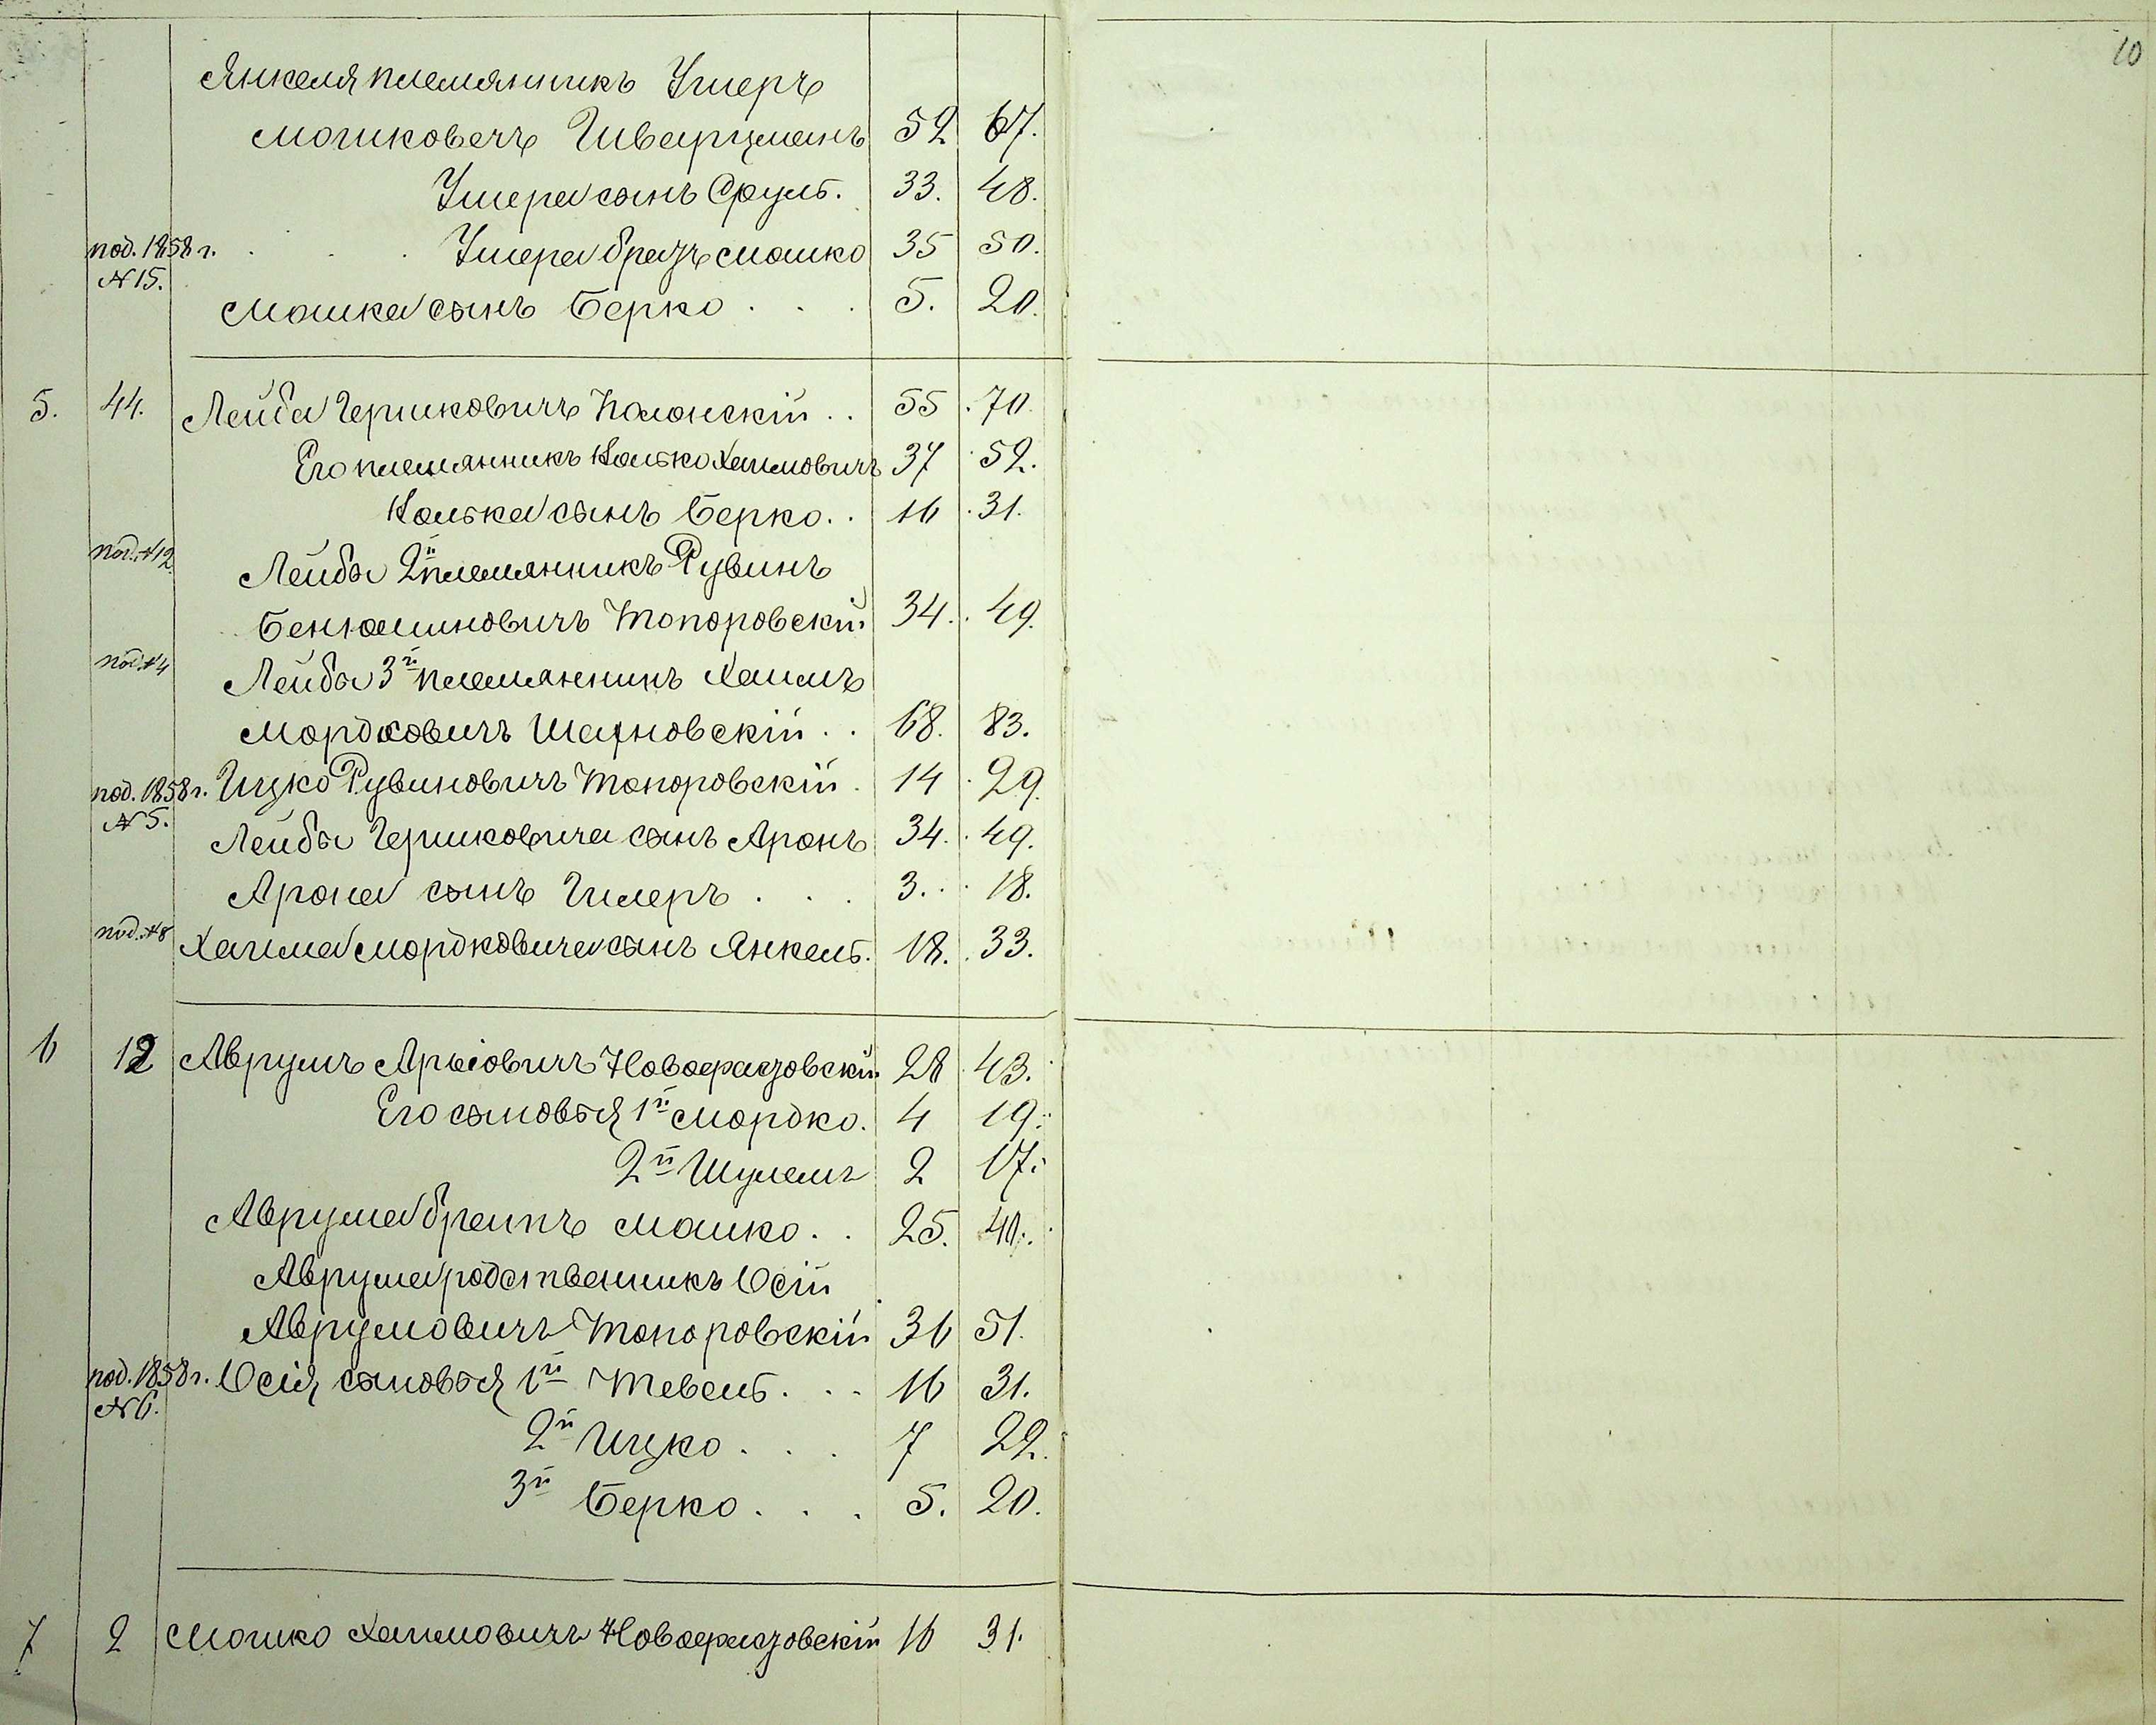 10
Янкеля племянникъ Ушеръ
Мошковичъ Шварцманъ 52 67.
Ушера сынъ Сруль. 33. 48.
под. 1858 г. Ушера братъ Мошко 35 50.
№ 15.
Мошка сынъ Берко . . . 5. 20.
5. 44. Лейба Гершковичъ Полонскій . . 55 70.
Его племянникъ Колько Хаимовичъ 37 52.
Колька сынъ Берко . . 16 31.
под. № 12. Лейбы 2й племянникъ Рувинъ
Бенюминовичъ Топоровскій 34. 49.
под. № 4 Лейбы 3й племянникъ Хаимъ
Мордковичъ Шахновскій . . 68. 83.
под. 1858 г. Ицко Рувиновичъ Топоровскій . 14 29.
№ 5.
Лейбы Гершковича сынъ Аронъ 34. 49.
Арона сынъ Гилеръ . . . 3. 18.
под. № 8 Хаима Мордковича сынъ Янкель. 18. 33.
6 12 Аврумъ Арьіовичъ Новофастовскій 28 43.
Его сыновья 1й Мордко. 4 19.
2й Шулемъ 2 17.
Аврума братъ Мошко . . 25. 40.
Аврума родственникъ Іосій
Аврумовичъ Топоровскій 36 51.
под. 1858 г. Іосія сыновья 1й Тевель . . . 16 31.
№ 6.
2й Ицко . . . 7 22.
3й Берко . . . 5. 20.
7 2 Мошко Хаимовичъ Новофастовскій 16 31.